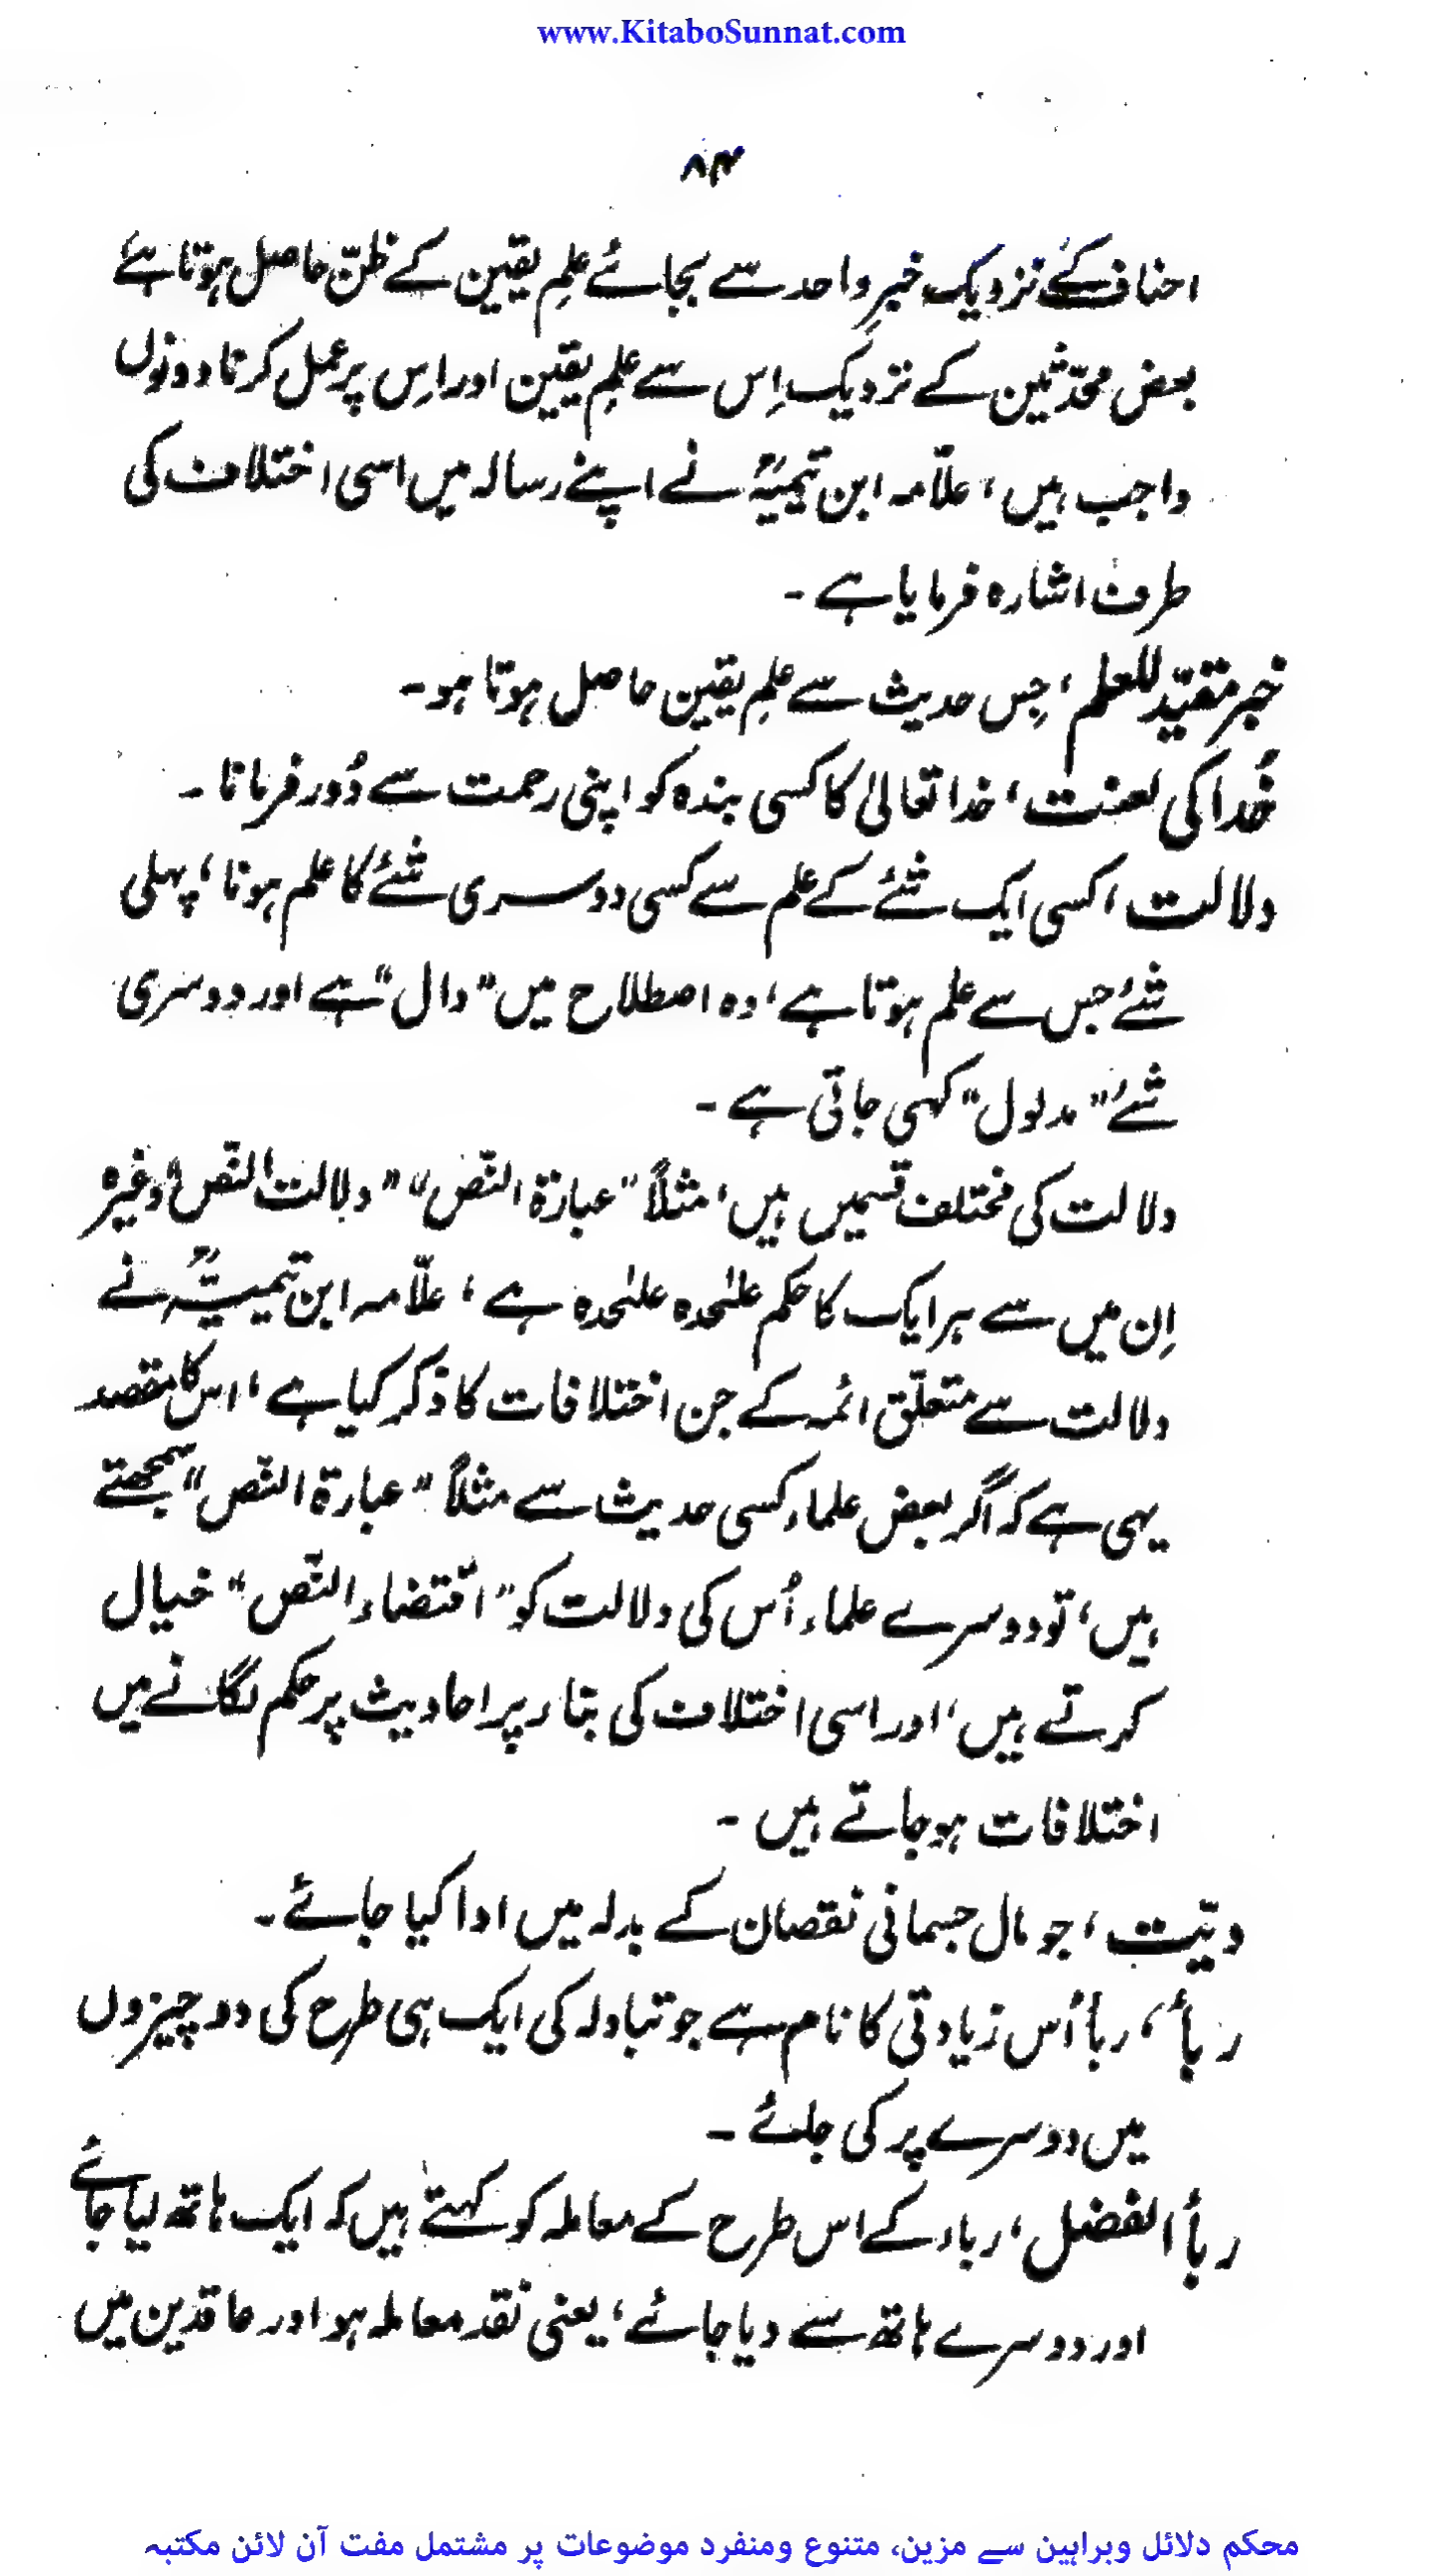 www.KitaboSunnat.com
۸۴
احناف کے نزدیک خبرِ واحد سے بجائے علمِ یقین کے ظنّ حاصل ہوتا ہے
بعض محدّثین کے نزدیک اِس سے علمِ یقین اور اِس پر عمل کرنا دونوں
واجب ہیں، علاّمہ ابن تیمیہؒ نے اپنے رسالہ میں اسی اختلاف کی
طرف اشارہ فرمایا ہے ۔
خبر مقیّد للعلم، جِس حدیث سے علمِ یقین حاصل ہوتا ہو۔
خُدا کی لعنت، خدا تعالیٰ کا کسی بندہ کو اپنی رحمت سے دُور فرمانا ۔
دلالت، کسی ایک شئے کے علم سے کسی دوسری شئے کا علم ہونا، پہلی
شئے جس سے علم ہوتا ہے، وہ اصطلاح میں "دال" ہے اور دوسری
شئے "مدلول" کہی جاتی ہے ۔
دلالت کی مختلف قسمیں ہیں، مثلاً "عبارۃ النّص" "دلالت النّص" وغیرہ
اِن میں سے ہر ایک کا حکم علیٰحدہ علیٰحدہ ہے، علاّمہ ابن تیمیہؒ نے
دلالت سے متعلّق ائمہ کے جن اختلافات کا ذکر کیا ہے، اس کا مقصد
یہی ہے کہ اگر بعض علماء کسی حدیث سے مثلاً "عبارۃ النّص" سمجھتے
ہیں، تو دوسرے علماء اُس کی دلالت کو "اقتضاء النّص" خیال
کرتے ہیں، اور اسی اختلاف کی بناء پر احادیث پر حکم لگانے میں
اختلافات ہوجاتے ہیں ۔
دیّت، جو مال جسمانی نقصان کے بدلہ میں ادا کیا جائے ۔
ربأ، ربأ اُس زیادتی کا نام ہے جو تبادلہ کی ایک ہی طرح کی دو چیزوں
میں دوسرے پر کی جائے ۔
ربأ الفضل، رباء کے اس طرح کے معاملہ کو کہتے ہیں کہ ایک ہاتھ لیا جائے
اور دوسرے ہاتھ سے دیا جائے، یعنی نقد معاملہ ہو اور عاقدین میں
محکم دلائل وبراہین سے مزین، متنوع ومنفرد موضوعات پر مشتمل مفت آن لائن مکتبہ